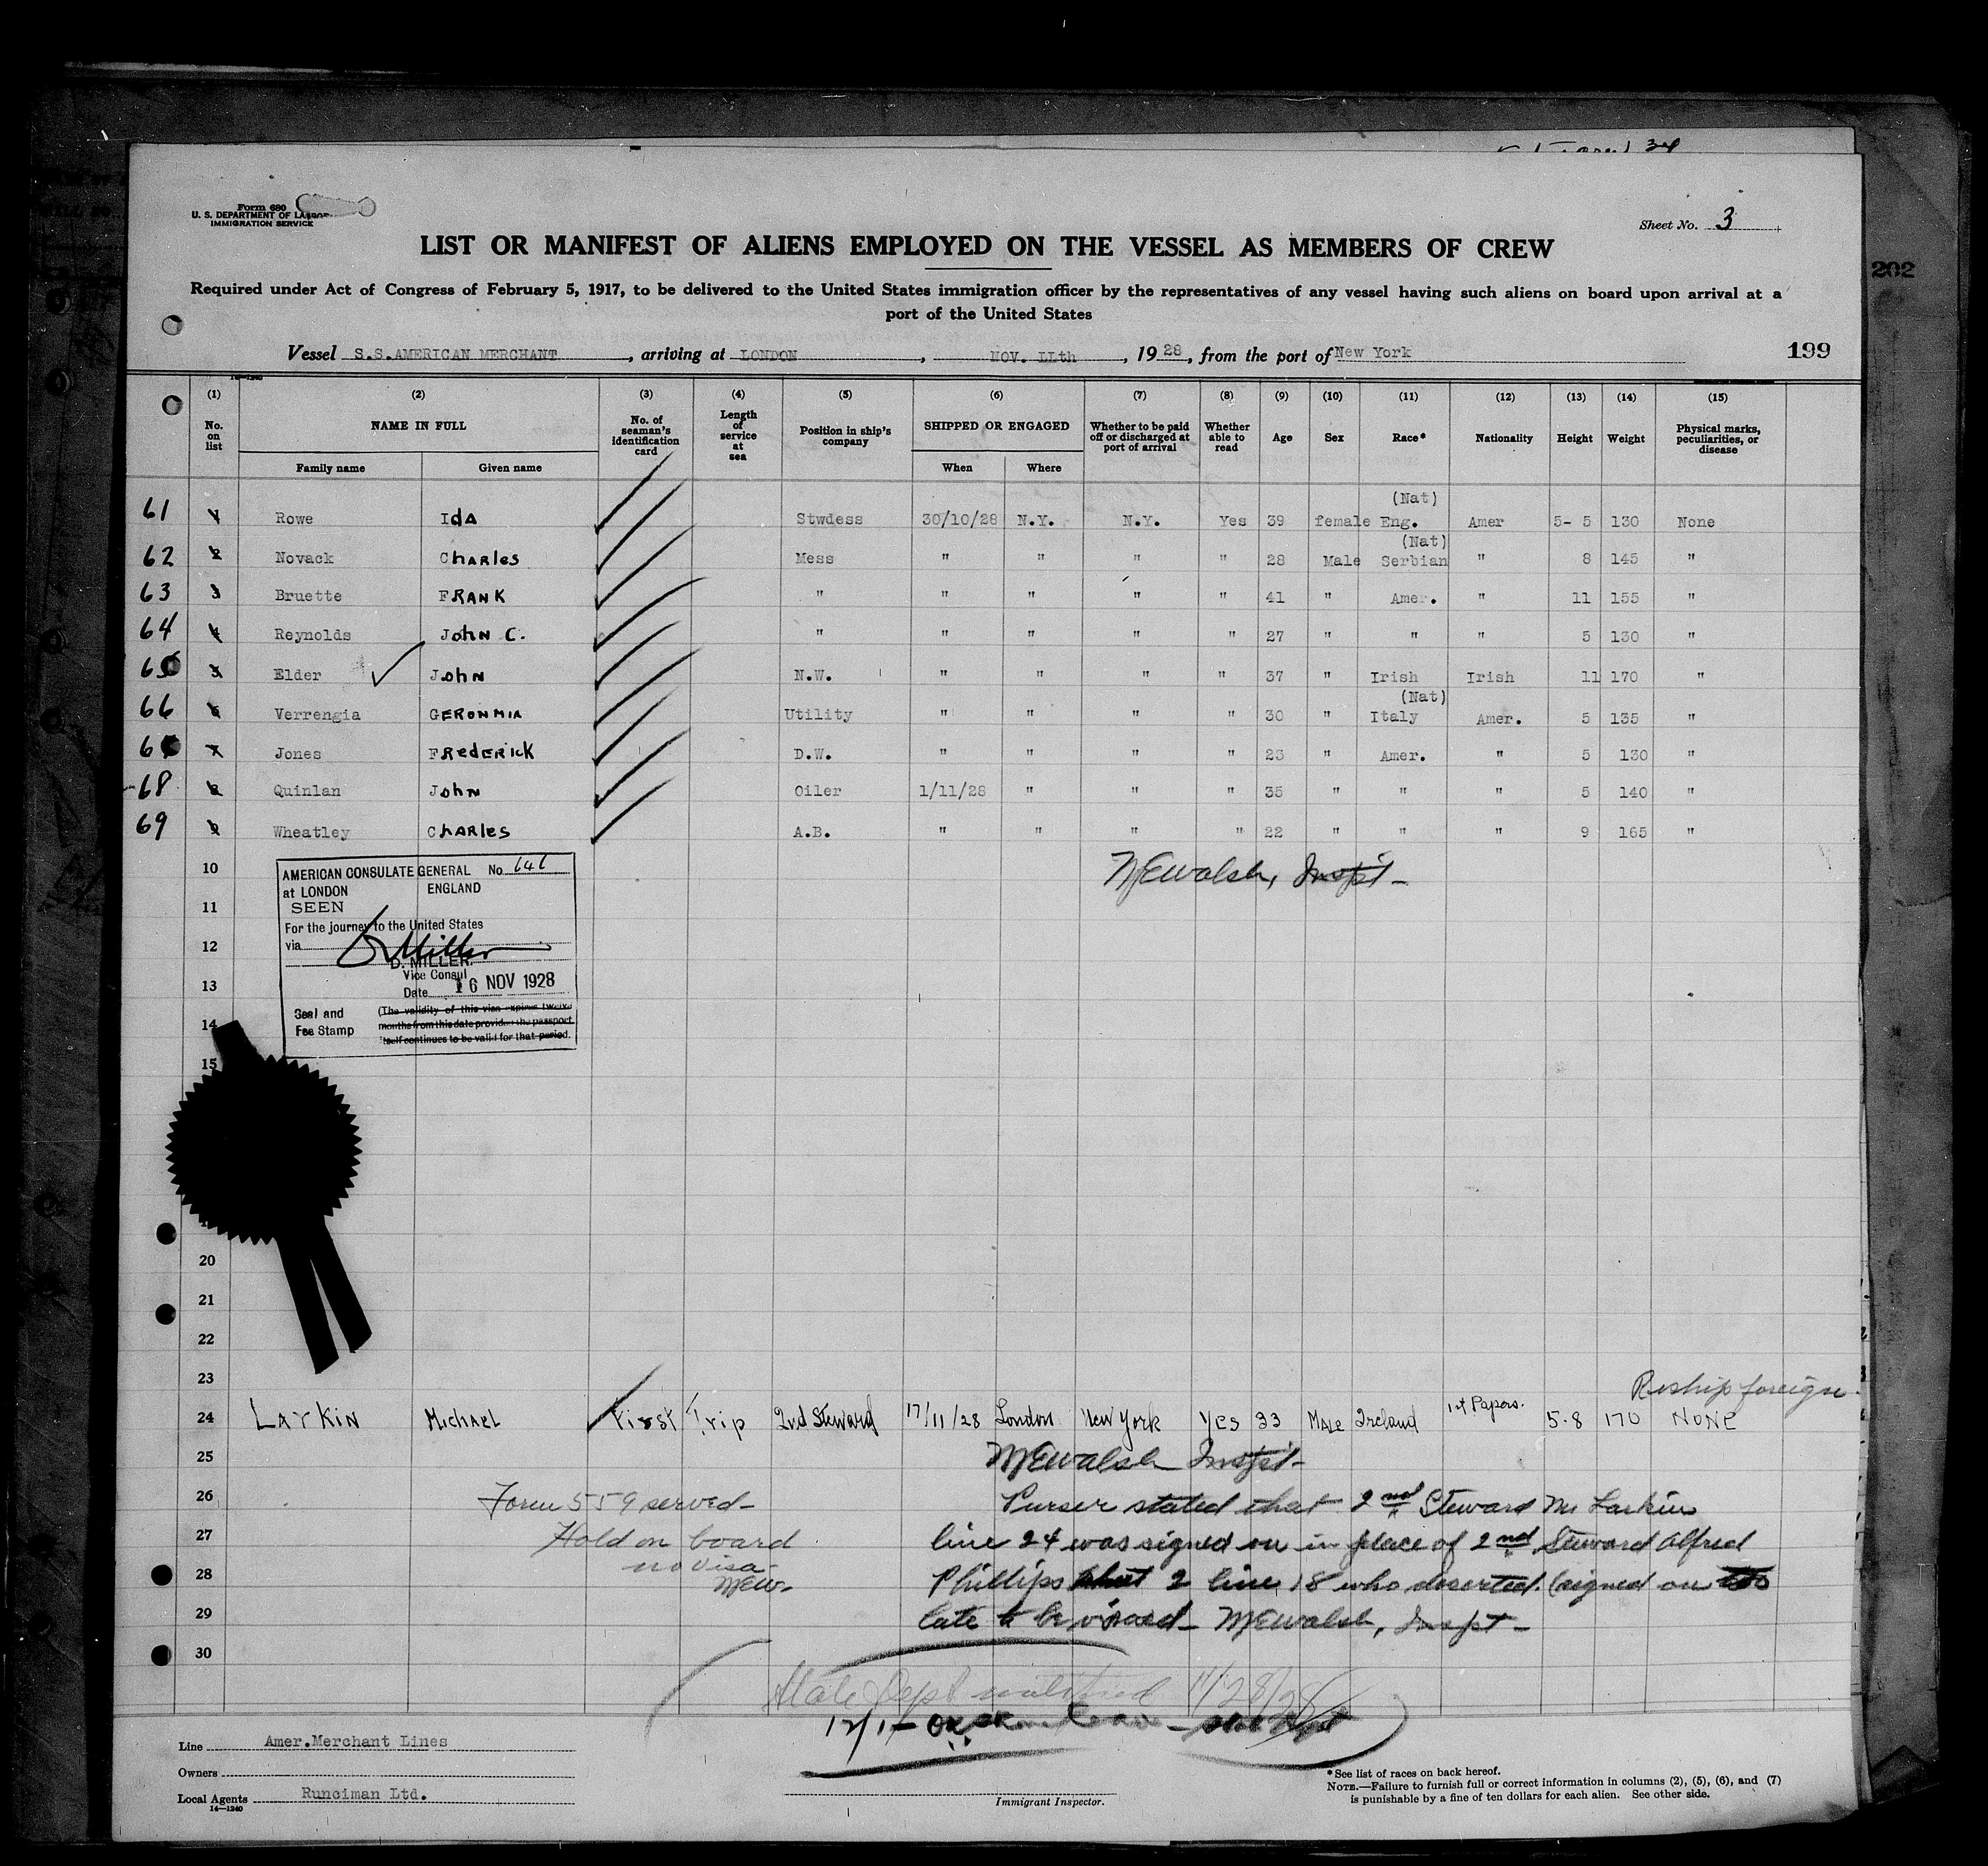 Form 680
U. S. DEPARTMENT OF LABOR
IMMIGRATION SERVICE
Sheet No. 3
LIST OR MANIFEST OF ALIENS EMPLOYED ON THE VESSEL AS MEMBERS OF CREW
202
Required under Act of Congress of February 5, 1917, to be delivered to the United States immigration officer by the representatives of any vessel having such aliens on board upon arrival at a
port of the United States
Vessel S.S.AMERICAN MERCHANT, arriving at LONDON, NOV. LLth, 1928, from the port of New York 199
(1) No. on list (2) NAME IN FULL Family name Given name (3) No. of seaman's identification card (4) Length of service at sea (5) Position in ship's company (6) SHIPPED OR ENGAGED When Where (7) Whether to be paid off or discharged at port of arrival (8) Whether able to read (9) Age (10) Sex (11) Race* (12) Nationality (13) Height (14) Weight (15) Physical marks, peculiarities, or disease
(Nat)
61 1 Rowe Ida Stwdess 30/10/28 N.Y. N.Y. Yes 39 female Eng. Amer 5- 5 130 None
(Nat)
62 2 Novack Charles Mess " " " " 28 Male Serbian " 8 145 "
63 3 Bruette Frank " " " " " 41 " Amer. " 11 155 "
64 4 Reynolds John C. " " " " " 27 " " " 5 130 "
65 5 Elder John N.W. " " " " 37 " Irish Irish 11 170 "
(Nat)
66 6 Verrengia Geronmia Utility " " " " 30 " Italy Amer. 5 135 "
67 7 Jones Frederick D.W. " " " " 23 " Amer. " 5 130 "
68 8 Quinlan John Oiler 1/11/28 " " " 35 " " " 5 140 "
69 9 Wheatley Charles A.B. " " " " 22 " " " 9 165 "
10 MEWalsh, Inspt-
AMERICAN CONSULATE GENERAL No 646
at LONDON ENGLAND
11
SEEN
For the journey to the United States
12
via
D Miller
D. MILLER.
Vice Consul
13
Date 16 NOV 1928
Seal and Fee Stamp
(The validity of this visa expires twelve
14
months from this date provided the passport
itself continues to be valid for that period.
15
20
21
22
23 Reship foreign
24 Larkin Michael First Trip 2nd Steward 17/11/28 London New York Yes 33 Male Ireland 1st Papers. 5-8 170 NONE
25 MEWalsh Inspt-
26 Form 559 served- Purser stated that 2nd Steward M. Larkin
27 Hold on board line 24 was signed on in place of 2nd Steward Alfred
28 no visa Phillips sheet 2 line 18 who deserted. (signed on too
MEW.
29 late to be visaed- MEWalsh, Inspt-
30
State Dept notified 11/28/28
12/1- OK State Dept
Line Amer.Merchant Lines
Owners
Local Agents Runciman Ltd.
14—1240
Immigrant Inspector.
*See list of races on back hereof.
NOTE.—Failure to furnish full or correct information in columns (2), (5), (6), and (7)
is punishable by a fine of ten dollars for each alien. See other side.